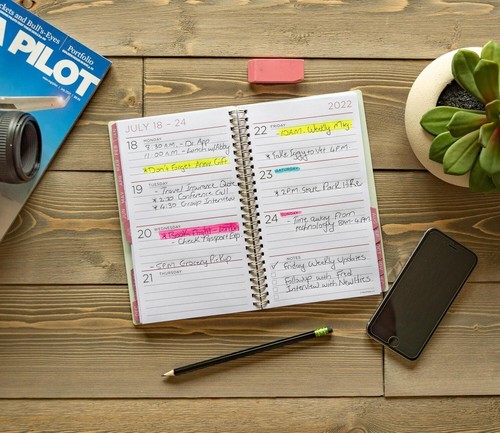 ckets and Bull's-Eyes
Portfolio
A PILOT
JULY 18 - 24
18 MONDAY
8:30 A.M. - Dr. App
11:00 A.M. - Lunch w/Abby
*Don't Forget Anniv Gift
19 TUESDAY
- Travel Insurance Quote
* 2:30 Conference Call
* 4:30 Group Interview
20 WEDNESDAY
* Book Flight -
- Check Passport Exp
- 5PM. Grocery Pickup
21 THURSDAY
2022
22 FRIDAY
- 10AM. Weekly Mtg
* Take Iggy to Vet 4PM
23 SATURDAY
* 2PM. State Park Hike
24 SUNDAY
- Time away From
technology 8AM - 4AM
NOTES
✓ Friday Weekly Updates
Follow up with Fred
Interview with New Hires